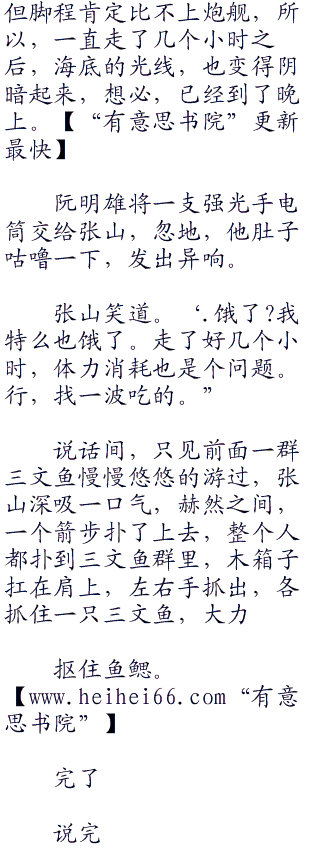 但脚程肯定比不上炮舰，所
以，一直走了几个小时之
后，海底的光线，也变得阴
暗起来，想必，已经到了晚
上。【“有意思书院”更新
最快】
阮明雄将一支强光手电
筒交给张山，忽地，他肚子
咕噜一下，发出异响。
张山笑道。‘.饿了?我
特么也饿了。走了好几个小
时，体力消耗也是个问题。
行，找一波吃的。”
说话间，只见前面一群
三文鱼慢慢悠悠的游过，张
山深吸一口气，赫然之间，
一个箭步扑了上去，整个人
都扑到三文鱼群里，木箱子
扛在肩上，左右手抓出，各
抓住一只三文鱼，大力
抠住鱼鳃。
【www.heihei66.com“有意
思书院”】
完了
说完